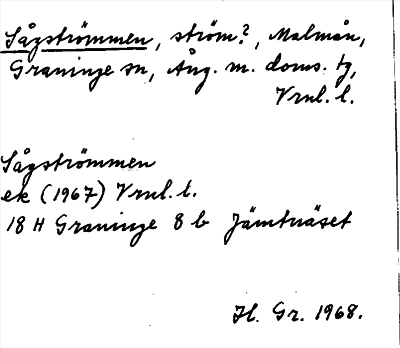 Sågströmmen, ström?, Malmån,
Graninge sn, Ång. m. doms. tg,
Vrnl. l.
Sågströmmen
ek (1967) Vrnl. l.
18 H Graninge 8 b Jämtnäset
H. Gr. 1968.